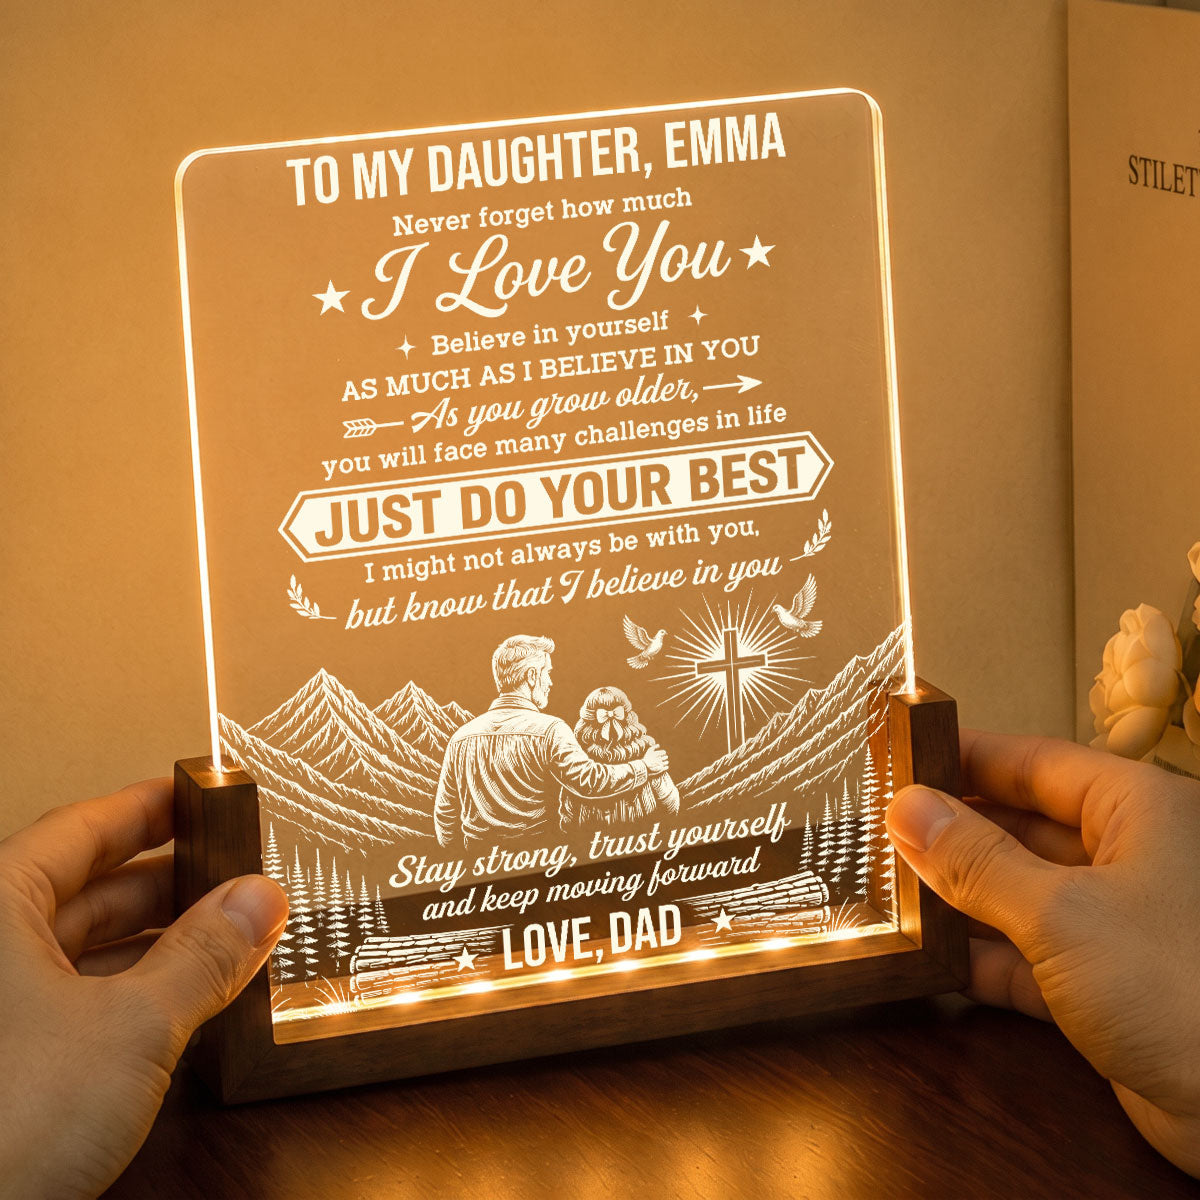 TO MY DAUGHTER, EMMA
Never forget how much
I Love You
Believe in yourself
AS MUCH AS I BELIEVE IN YOU
As you grow older,
you will face many challenges in life
JUST DO YOUR BEST
I might not always be with you,
but know that I believe in you
Stay strong, trust yourself
and keep moving forward
LOVE, DAD
STILET